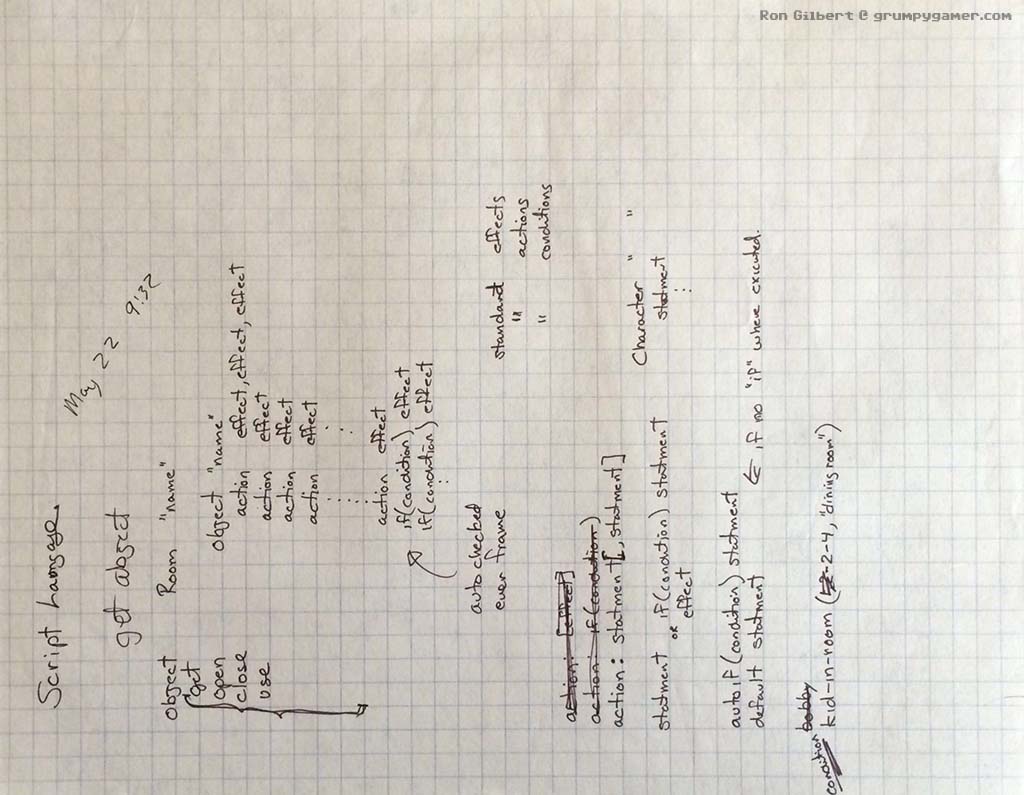 Ron Gilbert @ grumpygamer.com
Script Langage.
May 22 9:32
get abject
object Room "name"
get
open
close
use
object "name"
action effect, effect, effect
action effect
action effect
action effect
: :
: :
action effect
if(condition) effect
if(condition) effect
:
auto checked
ever frame
standard effects
" actions
" conditions
action: [effect]
action: if(condition)
action: statment[, statment]
statment or if(condition) statment
effect
Character " "
statment
:
auto if(condition) statment
default statment ← if no "if" where excuted.
condition
bobby
kid-in-room (1-2-2-4, "dining room")